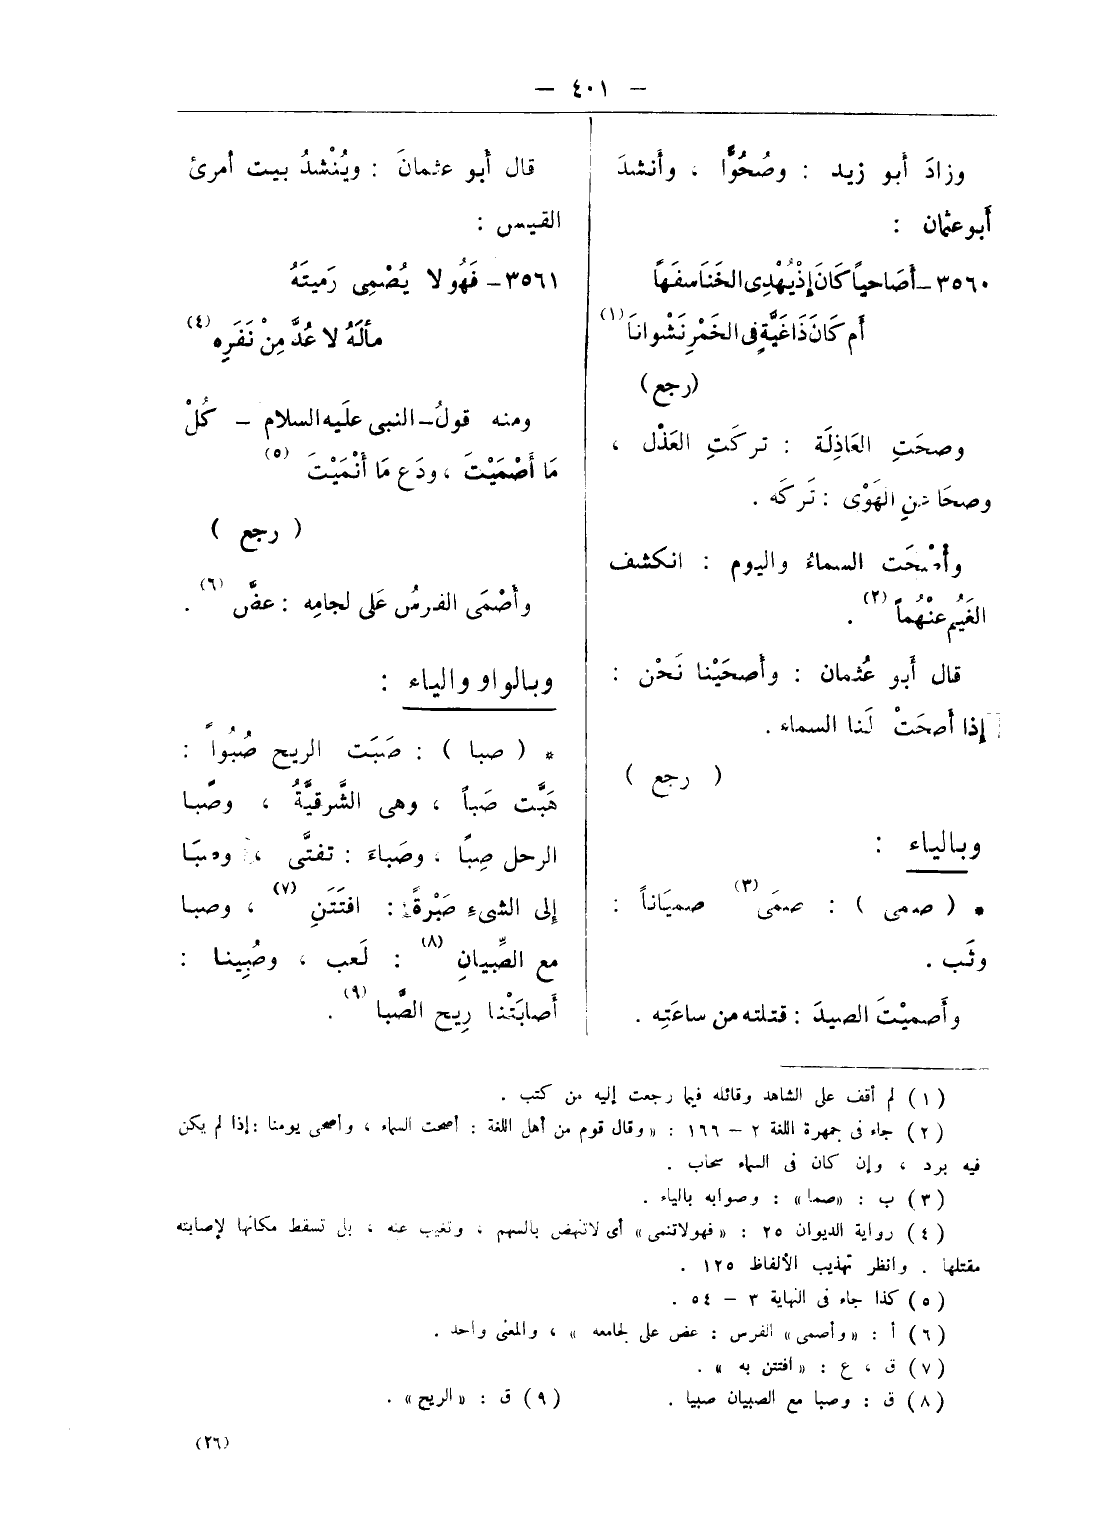 — ٤٠١ —
وزادَ أبو زيد : وصُحُوًّا ، وأنشدَ
أبو عثمان :
٣٥٦٠ـ أصَاحياً كَانَ إذْ يُهْدِى الخَنَا سفَهاً
أم كَانَ ذَا غَيَّةٍ فى الخَمْرِ نَشْوانَا (١)
(رجع)
وصحَتِ العَاذِلَة : تركَتِ العَذْل ،
وصحَا منِ الهَوْى : تَركَه .
وأصْحَت السماءُ واليوم : انكشف
الغَيُم عنْهُماً (٢) .
قال أَبو عُثمان : وأصحَيْنا نَحْن :
إذا أَصحَتْ لَنا السماء .
( رجع )
وبالياء :
* ( صمى ) : صمَى (٣) صميَاناً :
وثَب .
وأصميْتَ الصيدَ : قتلته من ساعَتِه .
قال أَبو عثمانَ : ويُنْشدُ بيت أمرئ
القيس :
٣٥٦١ـ فَهُو لا يُصْمِى رَميتَهُ
مألَهُ لا عُدَّ مِنْ نَفَرِه (٤)
ومنه قولُ ـ النبى علَيه السلام ـ كُلْ
مَا أَصْمَيْتَ ، ودَع مَا أَنْمَيْتَ (٥)
( رجع )
وأَصْمَى الفرسُ عَلى لجامِه : عضَّ (٦) .
وبالواو والياء :
* ( صبا ) : صَبَت الريح صُبُواً :
هَبَّت صَباً ، وهى الشَّرقيَّةُ ، وصَبا
الرحل صِبًا ، وصَباءَ : تفتَّى ، وصبَا
إلى الشىءِ صَبْوةً : افتَتَن (٧) ، وصبا
مع الصِّبيانِ (٨) : لَعب ، وصُبِينا :
أصابَتْنا رِيح الصَّبا (٩) .
(١) لم أقف على الشاهد وقائله فيما رجعت إليه من كتب .
(٢) جاء فى جمهرة اللغة ٢ – ١٦٦ : «وقال قوم من أهل اللغة : أصحت السماء ، وأصحى يومنا : إذا لم يكن
فيه برد ، وإن كان فى السماء سحاب .
(٣) ب : «صما» : وصوابه بالياء .
(٤) رواية الديوان ٢٥ : «فهو لاتنمى» أى لاتنهض بالسهم ، وتغيب عنه ، بل تسقط مكانها لإصابته
مقتلها . وانظر تهذيب الألفاظ ١٢٥ .
(٥) كذا جاء فى النهاية ٣ – ٥٤ .
(٦) أ : «وأصمى» الفرس : عض على لجامعه » ، والمعنى واحد .
(٧) ق ، ع : «افتتن به » .
(٨) ق : وصبا مع الصبيان صبيا . (٩) ق : «الريح» .
(٢٦)